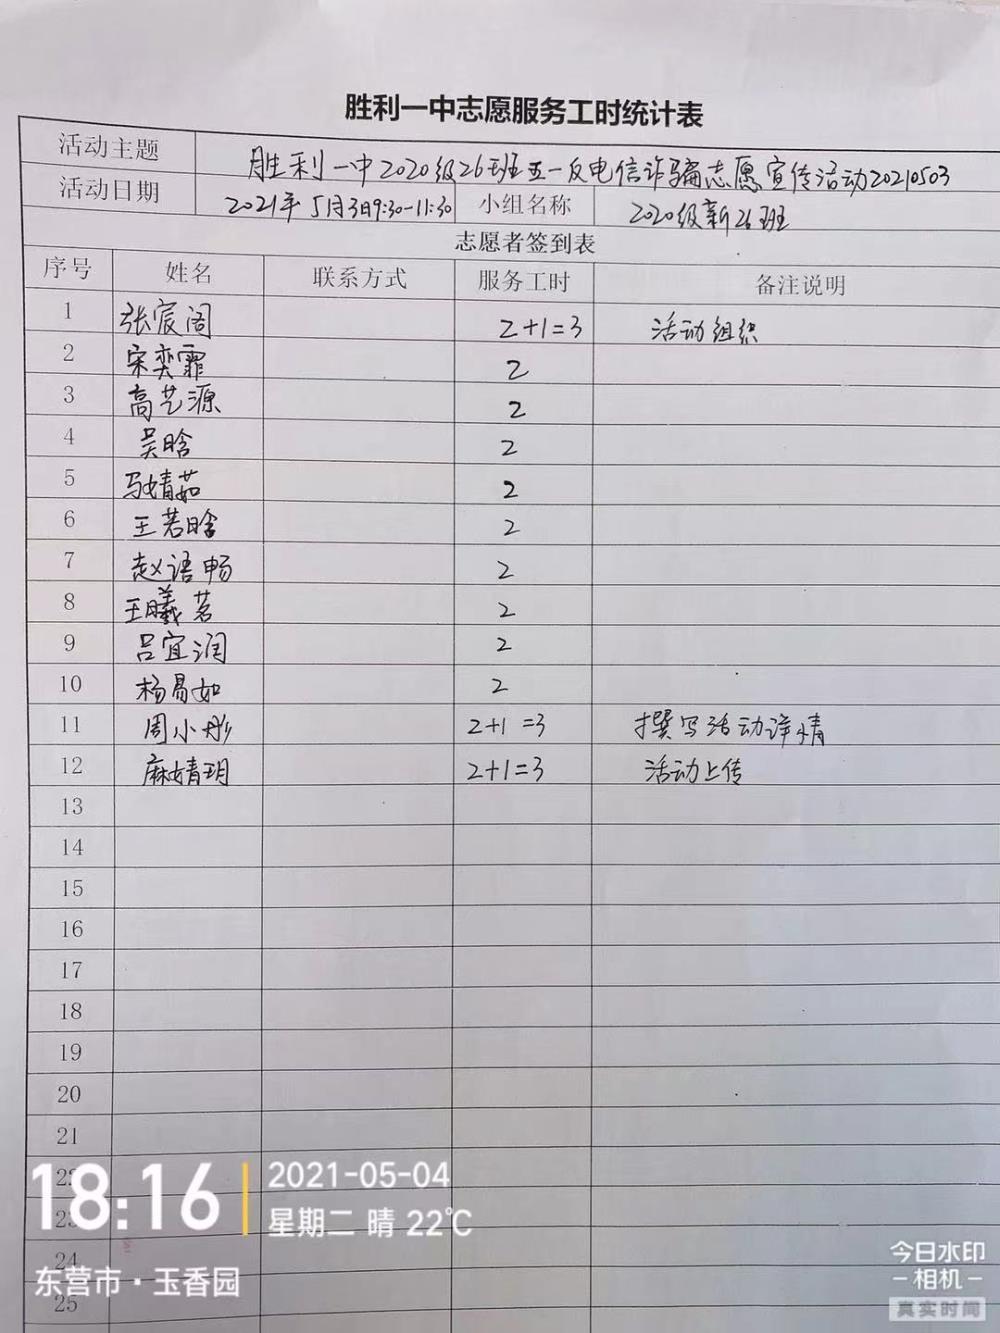 胜利一中志愿服务工时统计表
活动主题 胜利一中2020级26班五一反电信诈骗志愿宣传活动20210503
活动日期 2021年5月3日9:30-11:30 小组名称 2020级新26班
志愿者签到表
序号 姓名 联系方式 服务工时 备注说明
1 张宸阁 2+1=3 活动组织
2 宋奕霏 2
3 高艺源 2
4 吴晗 2
5 马婧茹 2
6 王若晗 2
7 赵语畅 2
8 王曦茗 2
9 吕宜润 2
10 杨易如 2
11 周小彤 2+1=3 撰写活动详情
12 麻婧玥 2+1=3 活动上传
13
14
15
16
17
18
19
20
21
22
23
24
25
18:16 2021-05-04
星期二 晴 22℃
东营市·玉香园
今日水印
-相机-
真实时间